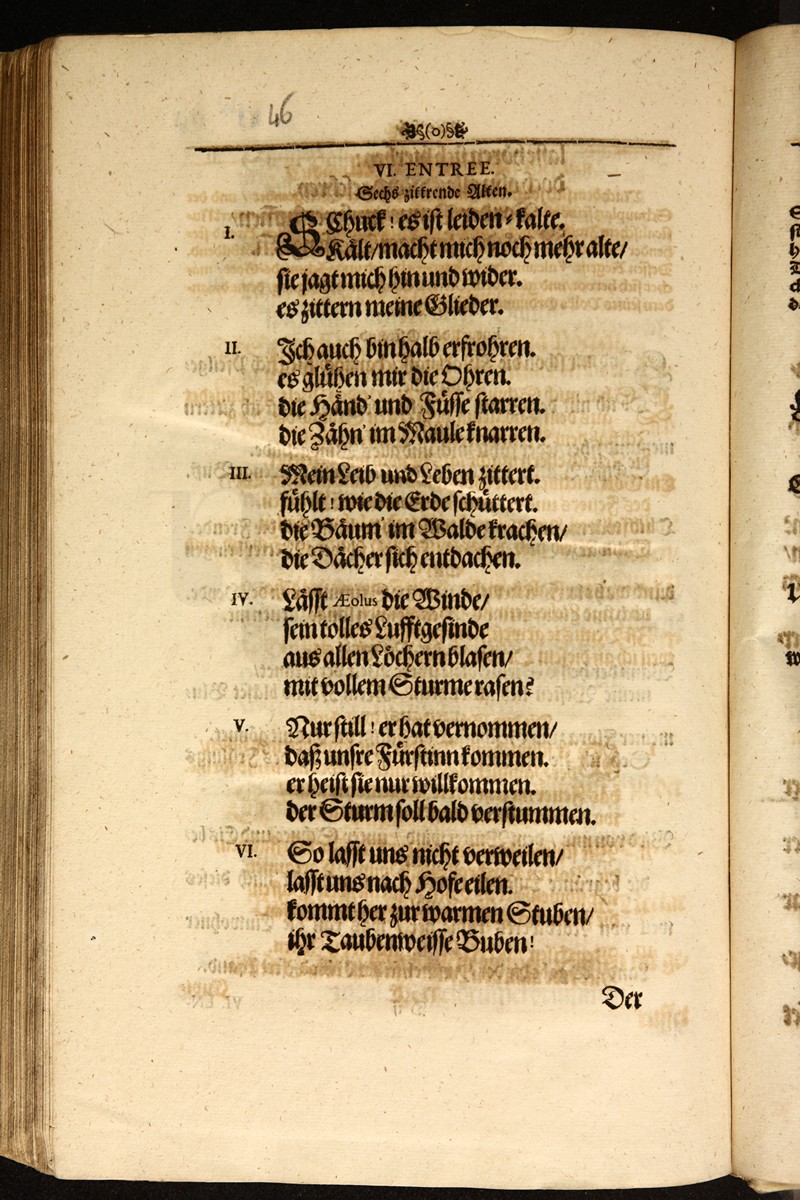 46
§(o)§
VI. ENTREE.
Sechs zittrende Alten.
I. SChuck! es ist leiden-kalte.
Kält/macht mich noch mehr alte/
sie jagt mich hin und wider.
es zittern meine Glieder.
II. Ich auch bin halb erfrohren.
es glühen mir die Ohren.
die Händ' und Füsse starren.
die Zähn' im Maule knarren.
III. Mein Leib und Leben zittert.
fühlt! wie die Erde schüttert.
die Bäum' im Walde krachen/
die Dächer sich entdachen.
IV. Lässt Æolus die Winde/
sein tolles Lufftgesinde
aus allen Löchern blasen/
mit vollem Sturme rasen?
V. Nur still! er hat vernommen/
daß unsre Fürstinn kommen.
er heist sie nur willkommen.
der Sturm soll bald verstummen.
VI. So lasst uns nicht verweilen/
lasst uns nach Hofe eilen.
kommt her zur warmen Stuben/
ihr Taubenweisse Buben!
Der